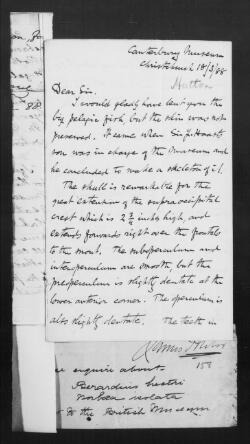 Canterbury Museum
Christchurch 18/3/88
Hutton
Dear Sir.
I would gladly have lent you the
big pelagic fish but the skin was not
preserved. It came when Sir J. Haast's
son was in charge of the Museum and
he concluded to make a skeleton of it.
The skull is remarkable for the
great extention of the supraoccipital
crest which is 2 3/4 inches high, and
extends forwards right over the frontals
to the snout. The suboperculum and
interoperculum are smooth, but the
preoperculum is slightly dentate at the
lower anterior corner. The operculum is
also slightly dentate. The teeth in
158
enquire about
Berardius hectori
violata
to the British Museum